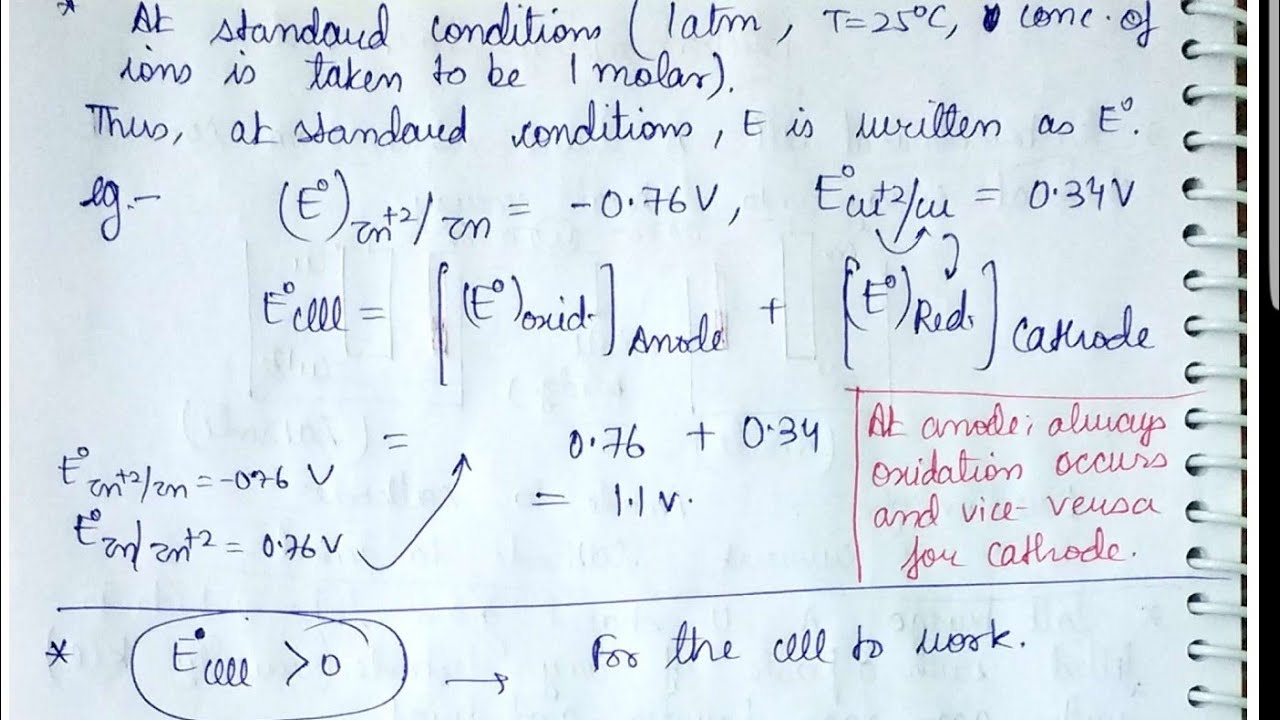 * At standard conditions (1atm, T=25°C, conc. of
ions is taken to be 1 molar).
Thus, at standard conditions, E is written as E°.
eg.- (E°)Zn+2/Zn = -0.76V, E°Cu+2/Cu = 0.34V
E°Cell = [(E°)oxid.]Anode + [(E°)Red.]Cathode
= 0.76 + 0.34
= 1.1 V.
E°Zn+2/Zn = -0.76 V
E°Zn/Zn+2 = 0.76 V
At anode; always
oxidation occurs
and vice-versa
for cathode.
* E°Cell > 0 → For the cell to work.